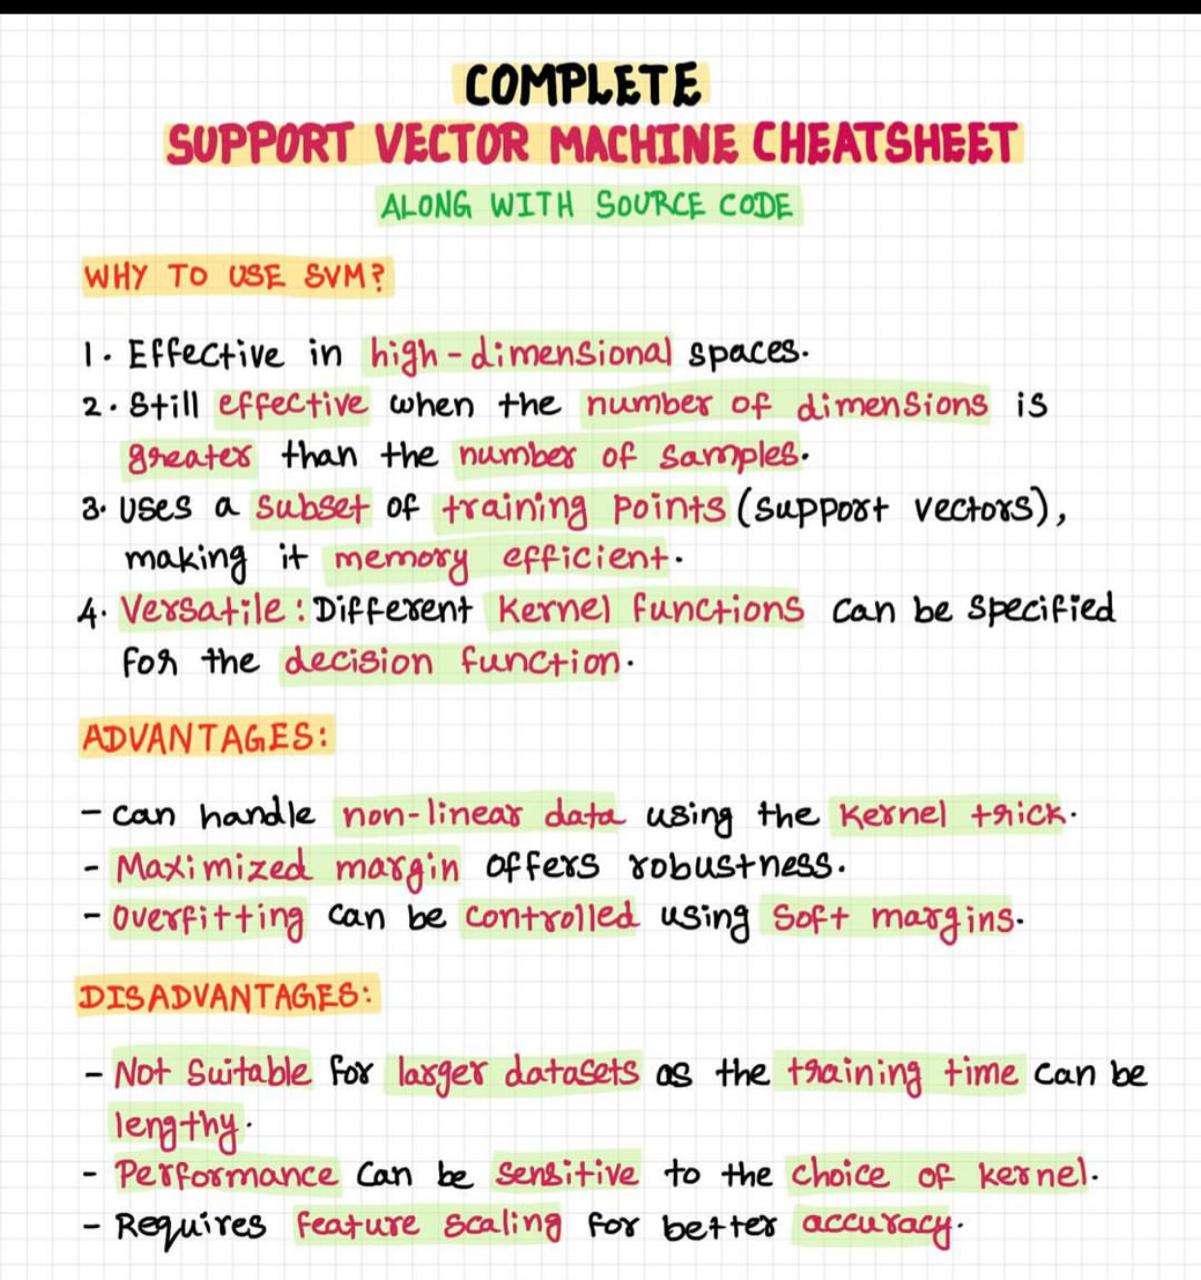 COMPLETE
SUPPORT VECTOR MACHINE CHEATSHEET
ALONG WITH SOURCE CODE
WHY TO USE SVM?
1. Effective in high-dimensional spaces.
2. Still effective when the number of dimensions is
greater than the number of samples.
3. Uses a subset of training points (support vectors),
making it memory efficient.
4. Versatile: Different Kernel functions can be specified
for the decision function.
ADVANTAGES:
- can handle non-linear data using the Kernel trick.
- Maximized margin offers robustness.
- Overfitting can be controlled using soft margins.
DISADVANTAGES:
- Not Suitable for larger datasets as the training time can be
lengthy.
- Performance can be sensitive to the choice of kernel.
- Requires feature scaling for better accuracy.